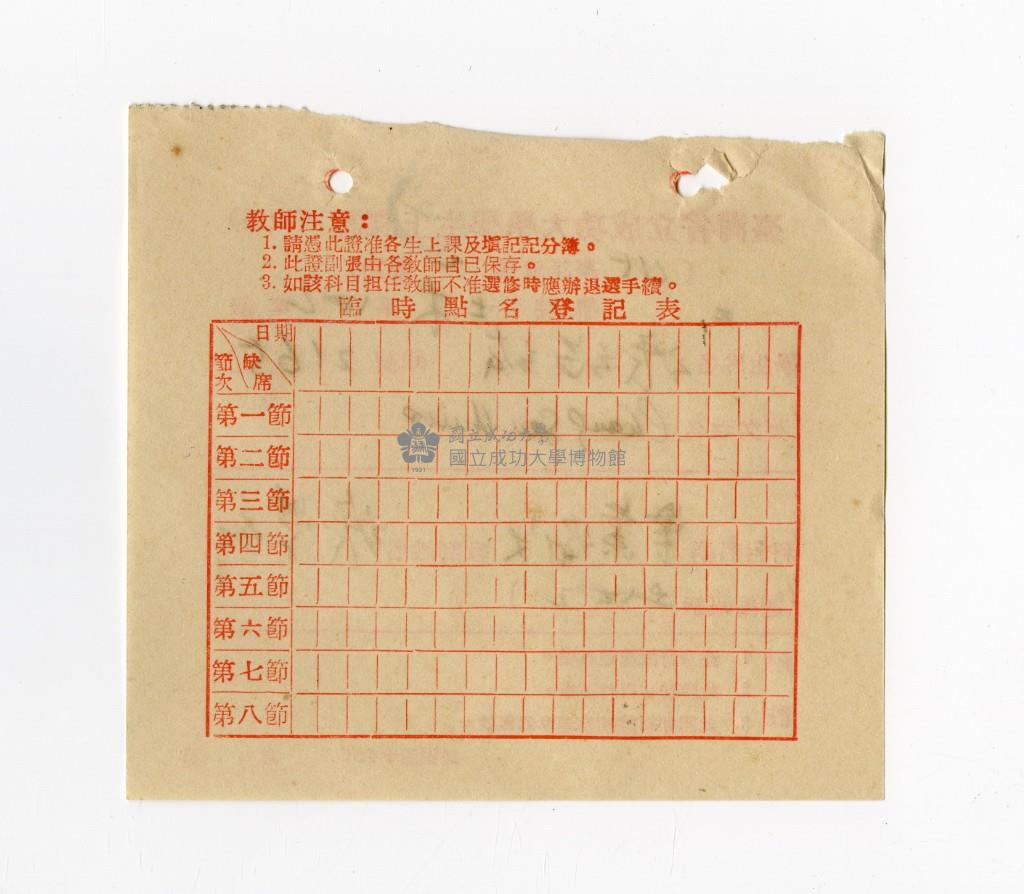 教師注意：
1. 請憑此證准各生上課及填記記分簿。
2. 此證副張由各教師自已保存。
3. 如該科目担任教師不准選修時應辦退選手續。
臨時點名登記表
日期
節次 缺席
第一節
第二節
第三節
第四節
第五節
第六節
第七節
第八節
國立成功大學
國立成功大學博物館
1931